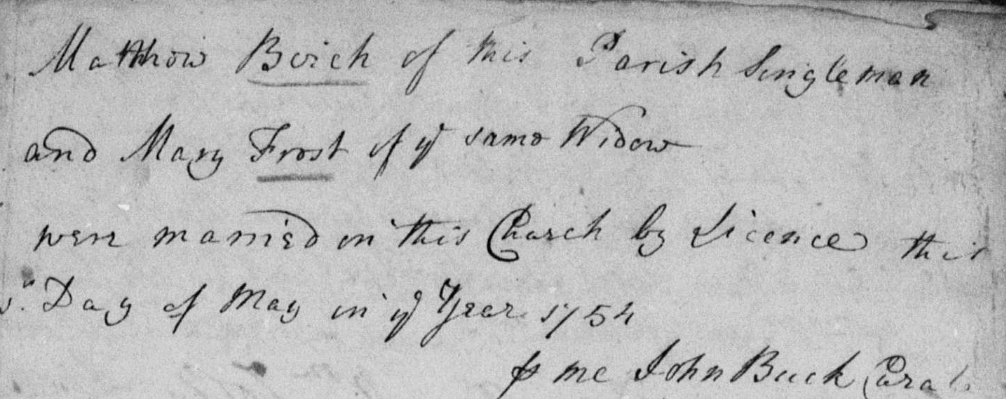 Matthew Birch of this Parish Singleman
and Mary Frost of ye same Widow
were married in this Church by Licence this
Day of May in ye Year 1754
p me John Buck